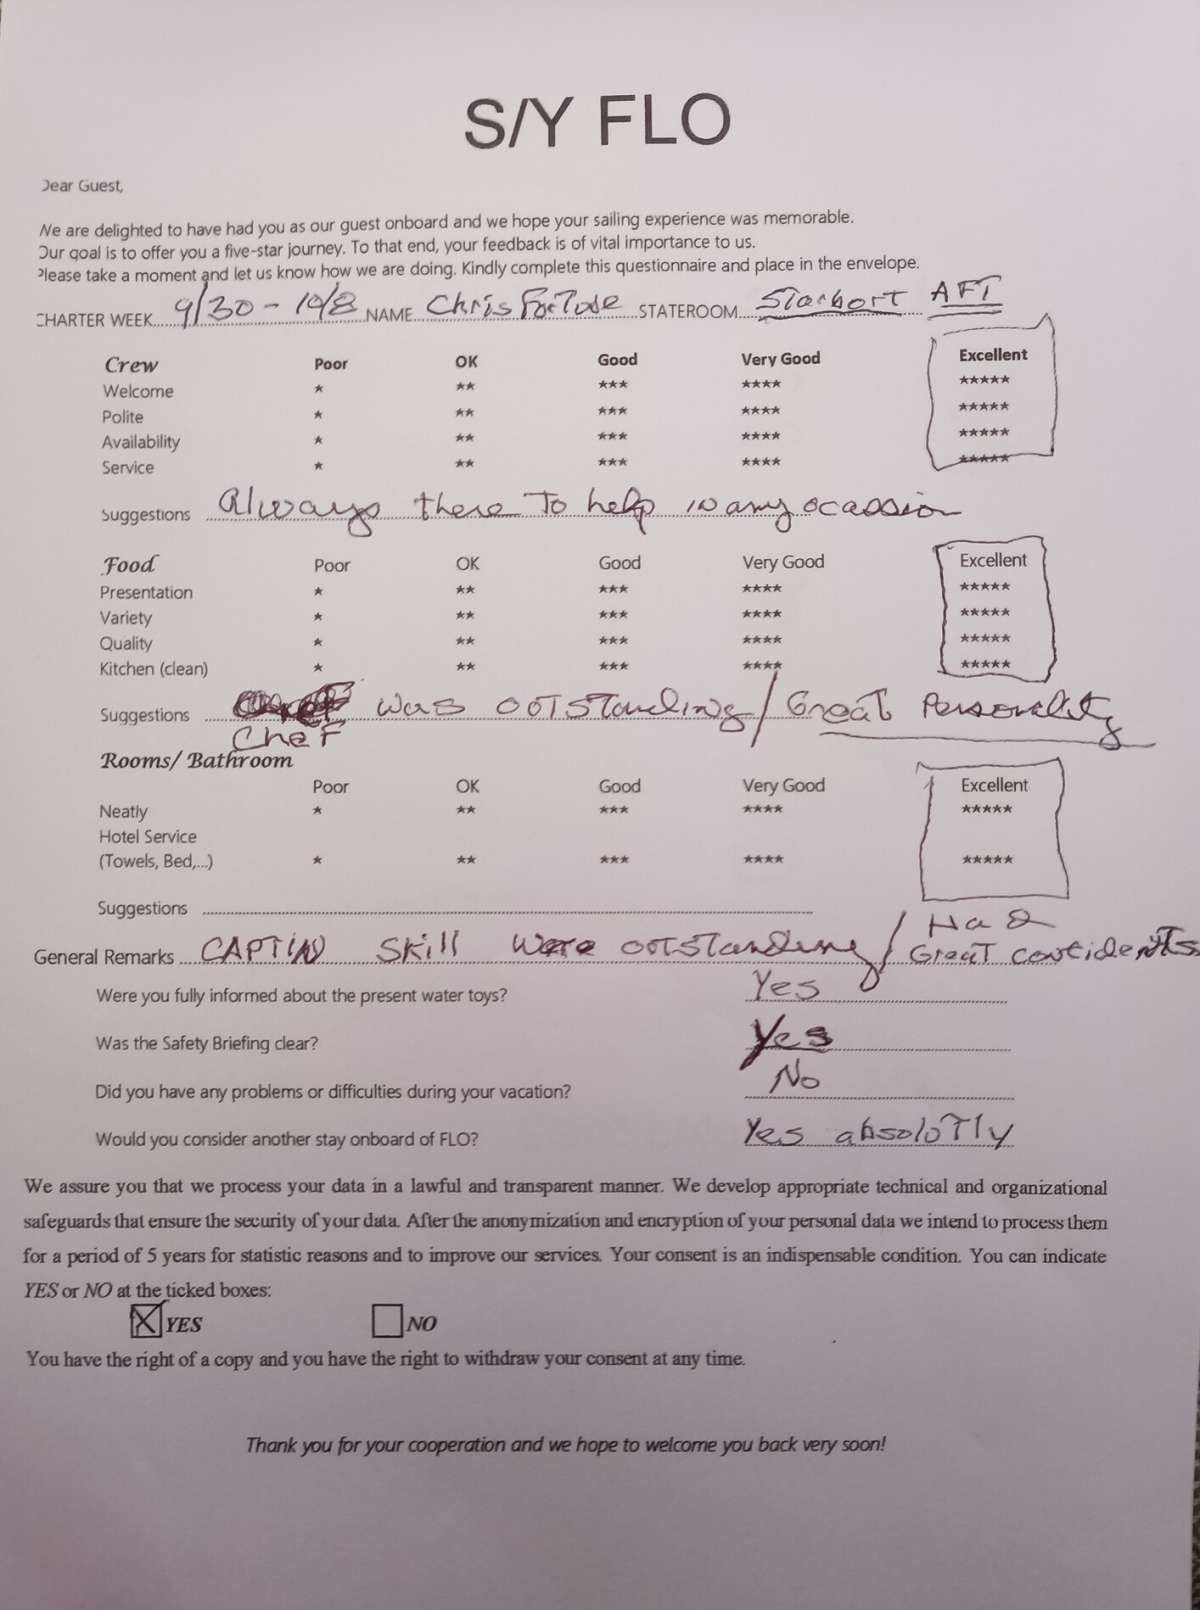 S/Y FLO
Dear Guest,
We are delighted to have had you as our guest onboard and we hope your sailing experience was memorable.
Our goal is to offer you a five-star journey. To that end, your feedback is of vital importance to us.
Please take a moment and let us know how we are doing. Kindly complete this questionnaire and place in the envelope.
CHARTER WEEK 9/30 - 10/8 NAME Chris STATEROOM Starbort AFT
Crew Poor OK Good Very Good Excellent
Welcome * ** *** **** *****
Polite * ** *** **** *****
Availability * ** *** **** *****
Service * ** *** **** *****
Suggestions Always there To help in any ocassion
Food Poor OK Good Very Good Excellent
Presentation * ** *** **** *****
Variety * ** *** **** *****
Quality * ** *** **** *****
Kitchen (clean) * ** *** **** *****
Suggestions was ootstanding / Great Personality
Chef
Rooms/ Bathroom
Poor OK Good Very Good Excellent
Neatly * ** *** **** *****
Hotel Service
(Towels, Bed,...) * ** *** **** *****
Suggestions
Had
General Remarks CAPTIN Skill Were ootstanding / Great
Were you fully informed about the present water toys? Yes
Was the Safety Briefing clear? Yes
Did you have any problems or difficulties during your vacation? No
Would you consider another stay onboard of FLO? Yes absolotly
We assure you that we process your data in a lawful and transparent manner. We develop appropriate technical and organizational
safeguards that ensure the security of your data. After the anonymization and encryption of your personal data we intend to process them
for a period of 5 years for statistic reasons and to improve our services. Your consent is an indispensable condition. You can indicate
YES or NO at the ticked boxes:
YES NO
You have the right of a copy and you have the right to withdraw your consent at any time.
Thank you for your cooperation and we hope to welcome you back very soon!